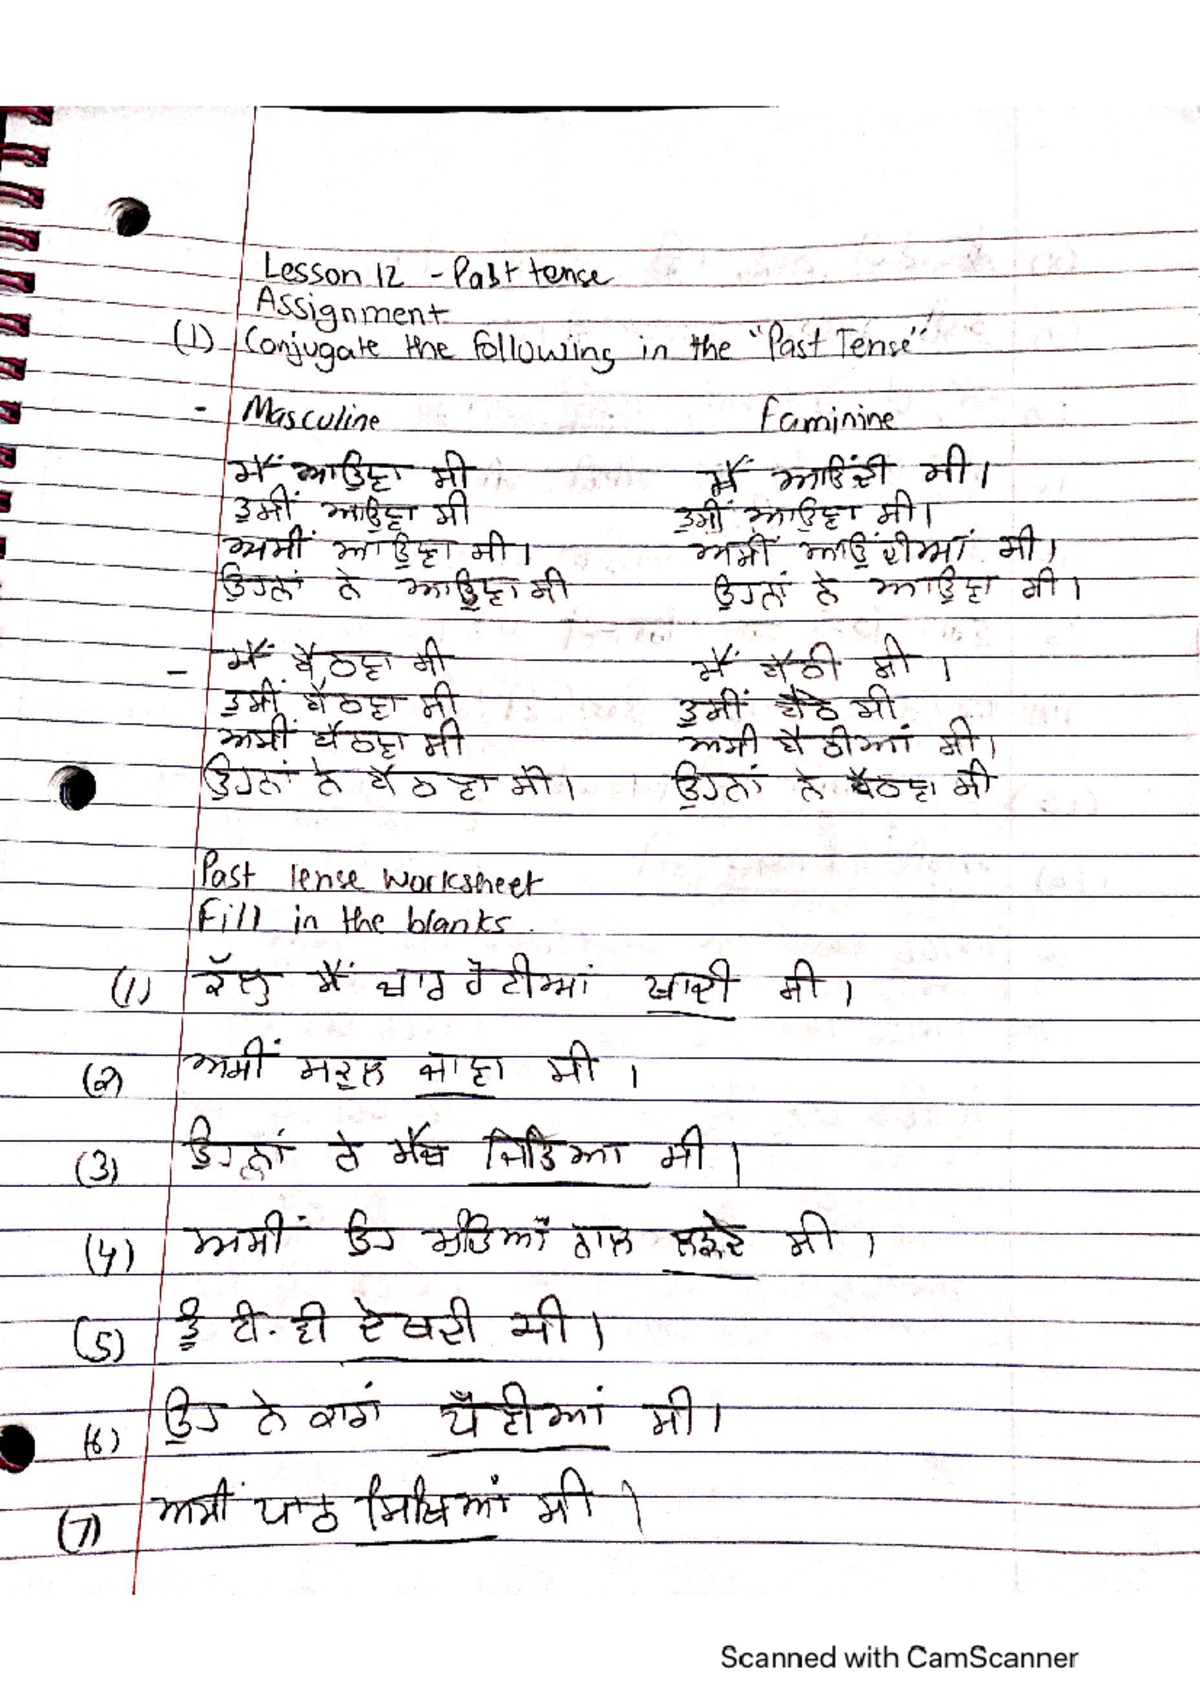 Lesson 12 - Past tense
Assignment
(1) Conjugate the following in the "Past Tense"
- Masculine Faminine
ਮੈਂ ਆਉਣਾ ਸੀ ਮੈਂ ਆਉਂਦੀ ਸੀ।
ਤੁਸੀਂ ਆਉਣਾ ਸੀ ਤੁਸੀਂ ਆਉਣਾ ਸੀ।
ਅਸੀਂ ਆਉਣਾ ਸੀ। ਅਸੀਂ ਆਉਂਦੀਆਂ ਸੀ।
ਉਹਨਾਂ ਨੇ ਆਉਣਾ ਸੀ ਉਹਨਾਂ ਨੇ ਆਉਣਾ ਸੀ।
- ਮੈਂ ਬੈਠਣਾ ਸੀ ਮੈਂ ਬੈਠੀ ਸੀ ।
ਤੁਸੀਂ ਬੈਠਣਾ ਸੀ ਤੁਸੀਂ ਬੈਠੇ ਸੀ
ਅਸੀਂ ਬੈਠਣਾ ਸੀ ਅਸੀ ਬੈਠੀਆਂ ਸੀ।
ਉਹਨਾਂ ਨੇ ਬੈਠਣਾ ਸੀ। ਉਹਨਾਂ ਨੇ ਬੈਠਣਾ ਸੀ
Past tense worksheet
Fill in the blanks.
(1) ਕੱਲ੍ਹ ਮੈਂ ਚਾਰ ਰੋਟੀਆਂ ਖਾਦੀ ਸੀ।
(2) ਅਸੀਂ ਸਕੂਲ ਜਾਣਾ ਸੀ ।
(3) ਉਹਨਾਂ ਨੇ ਮੈਚ ਜਿਤਿਆ ਸੀ।
(4) ਅਸੀਂ ਉਹ ਮੁੰਡਿਆਂ ਨਾਲ ਲੜਦੇ ਸੀ ।
(5) ਤੂੰ ਟੀ.ਵੀ ਦੇਖਦੀ ਸੀ।
(6) ਉਹ ਨੇ ਕਾਰਾਂ ਧੌਣੀਆਂ ਸੀ।
(7) ਅਸੀਂ ਪਾਠ ਸਿਖਿਆਂ ਸੀ।
Scanned with CamScanner